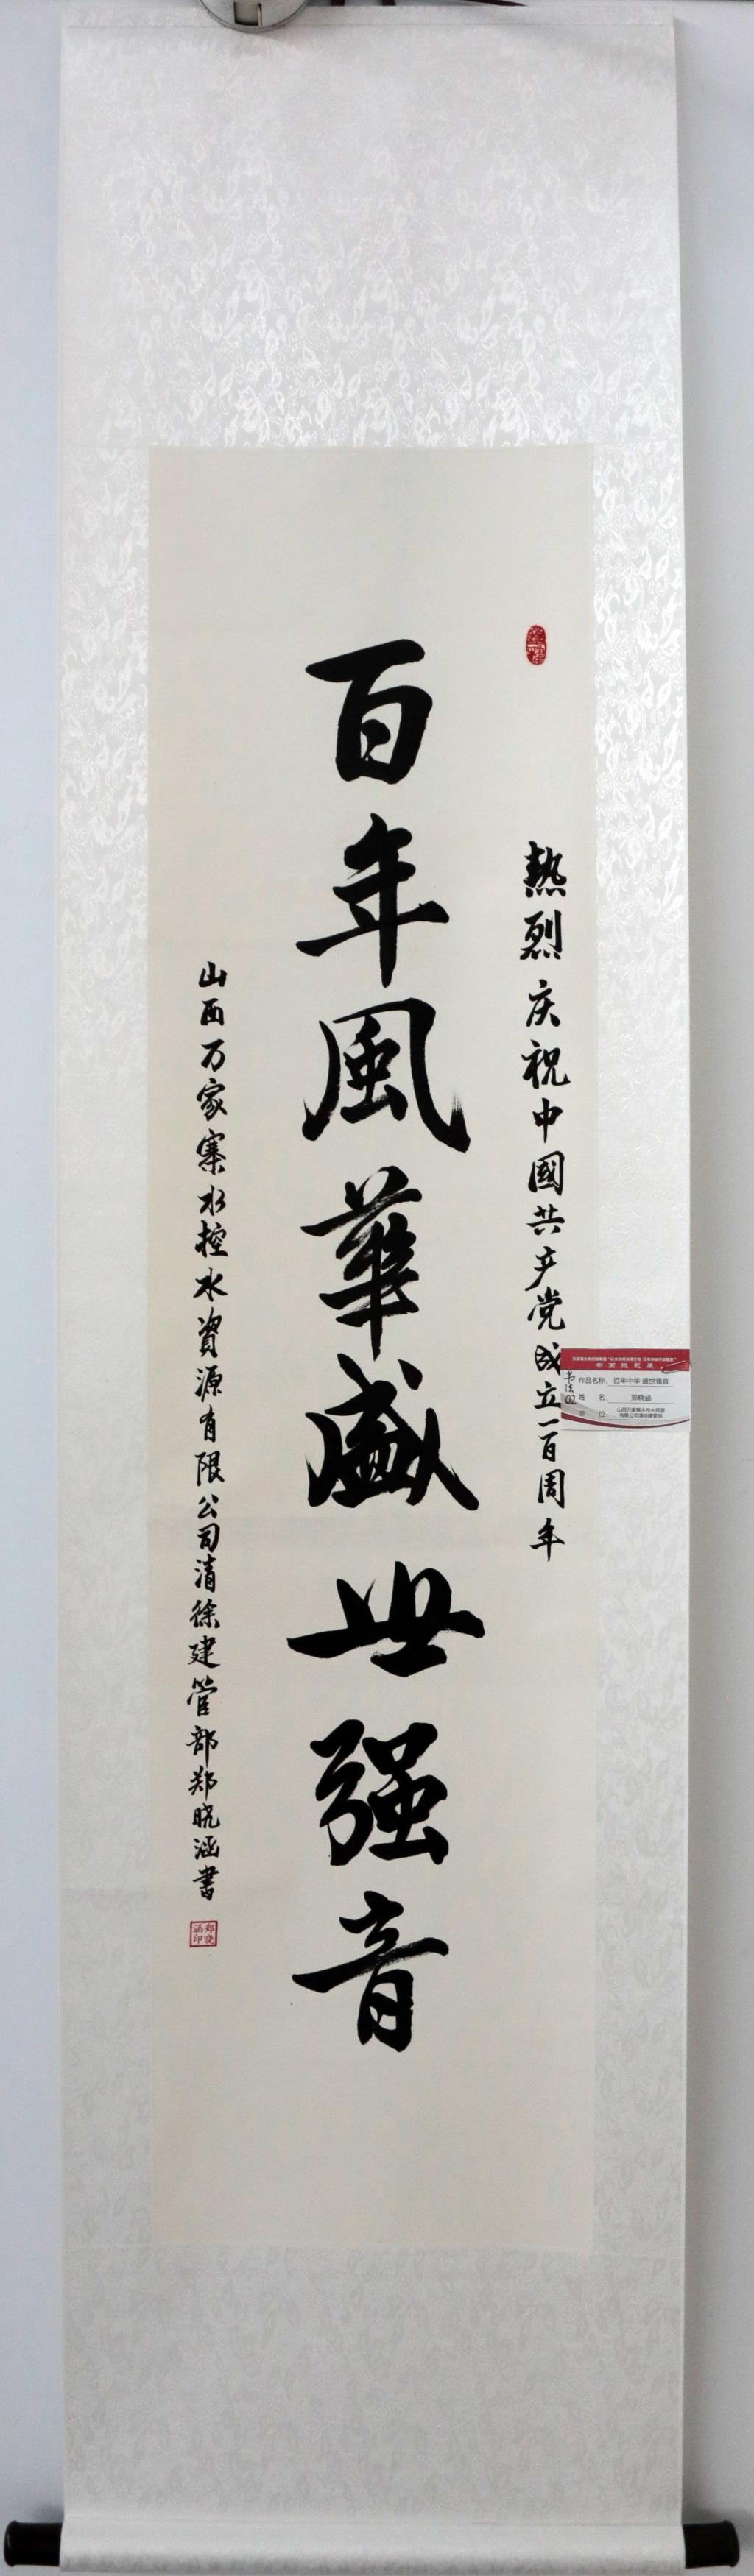 熱烈庆祝中國共产党成立一百周年
百年風華盛世强音
山西万家寨水控水資源有限公司清徐建管部郑晓涵书
郑晓涵印
书法02
作品名称：百年中华 盛世强音
姓 名：郑晓涵
单 位：山西万家寨水控水资源
有限公司清徐建管部